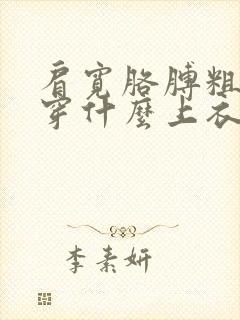 肩寬胳膊粗
穿什麼上衣
李素妍